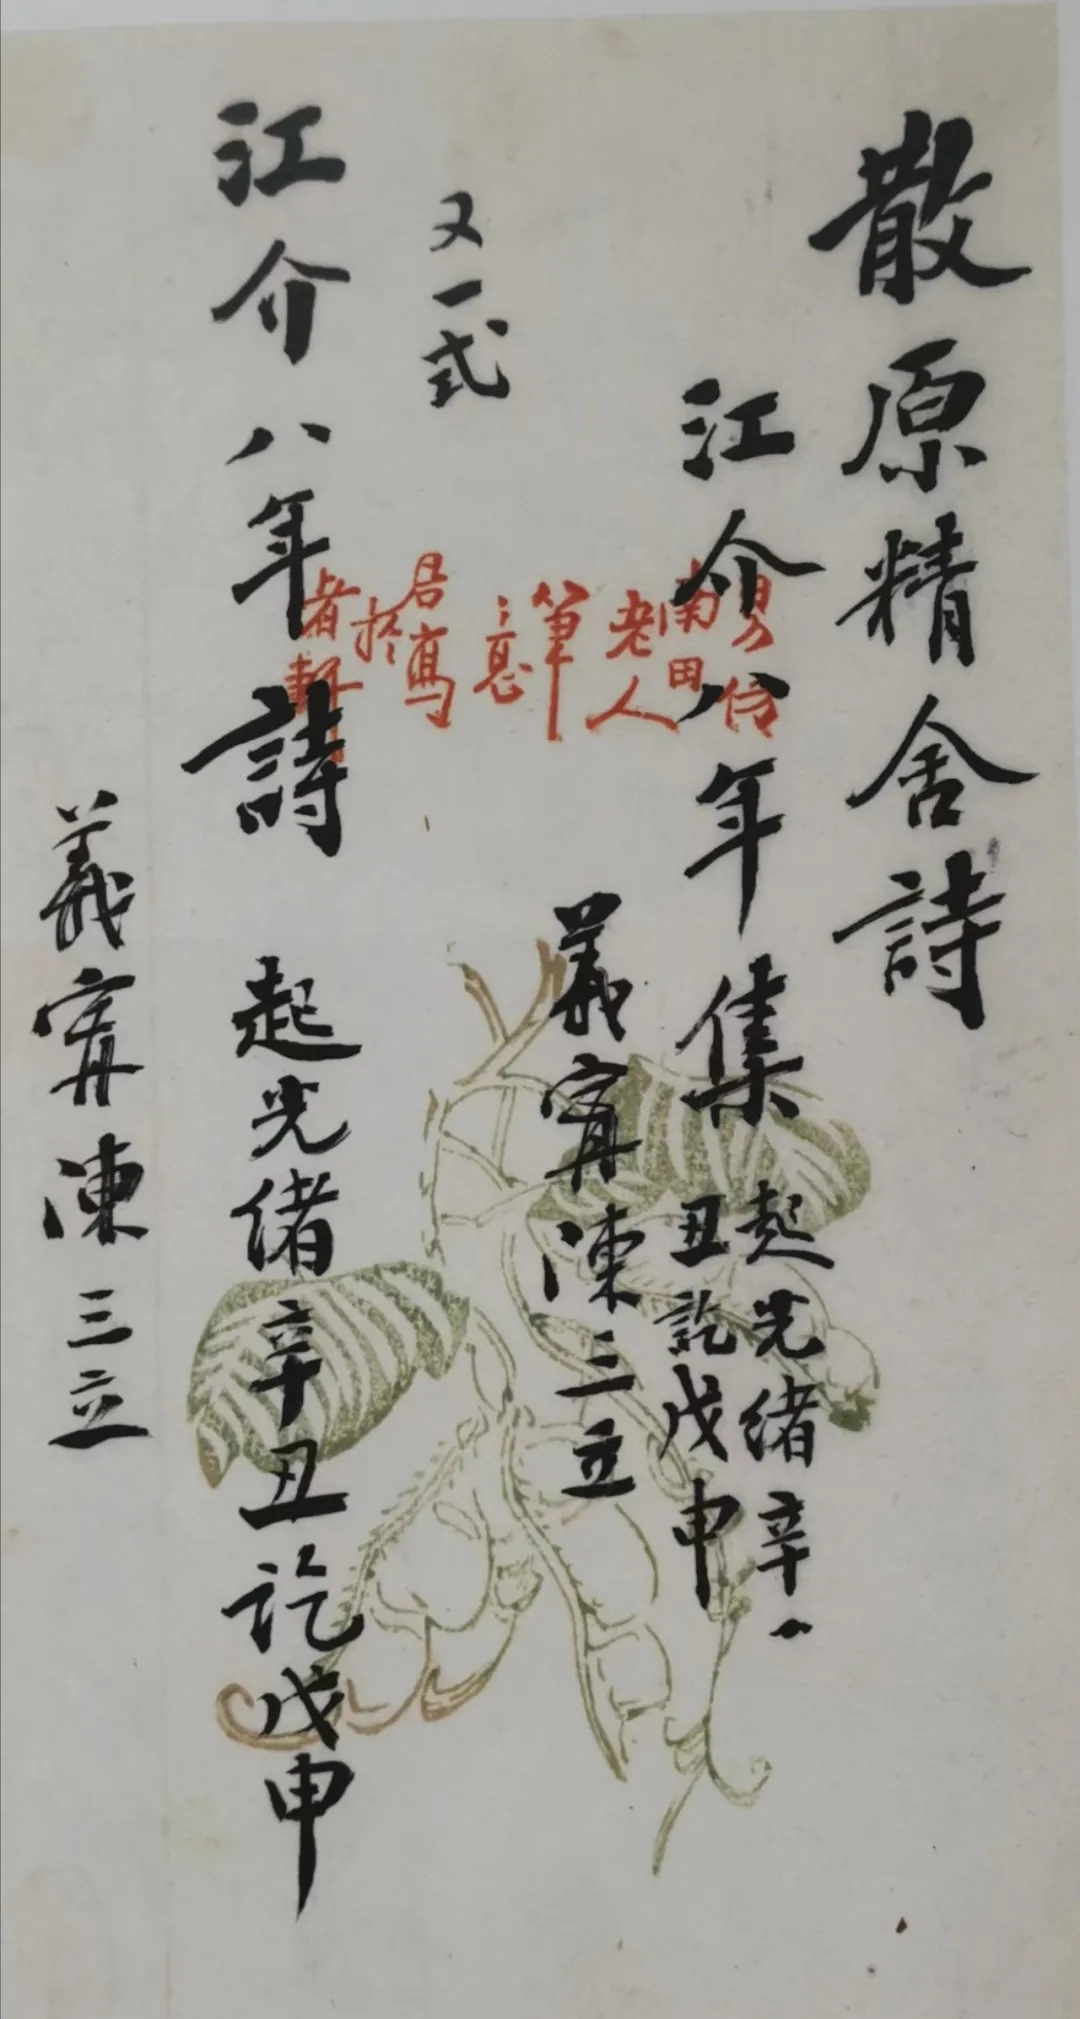 散原精舍詩
江介八年集
起光緒辛
丑訖戊申
義甯陳三立
仿南田老人筆意
又一式
江介八年詩 起光緒辛丑訖戊申
義甯陳三立